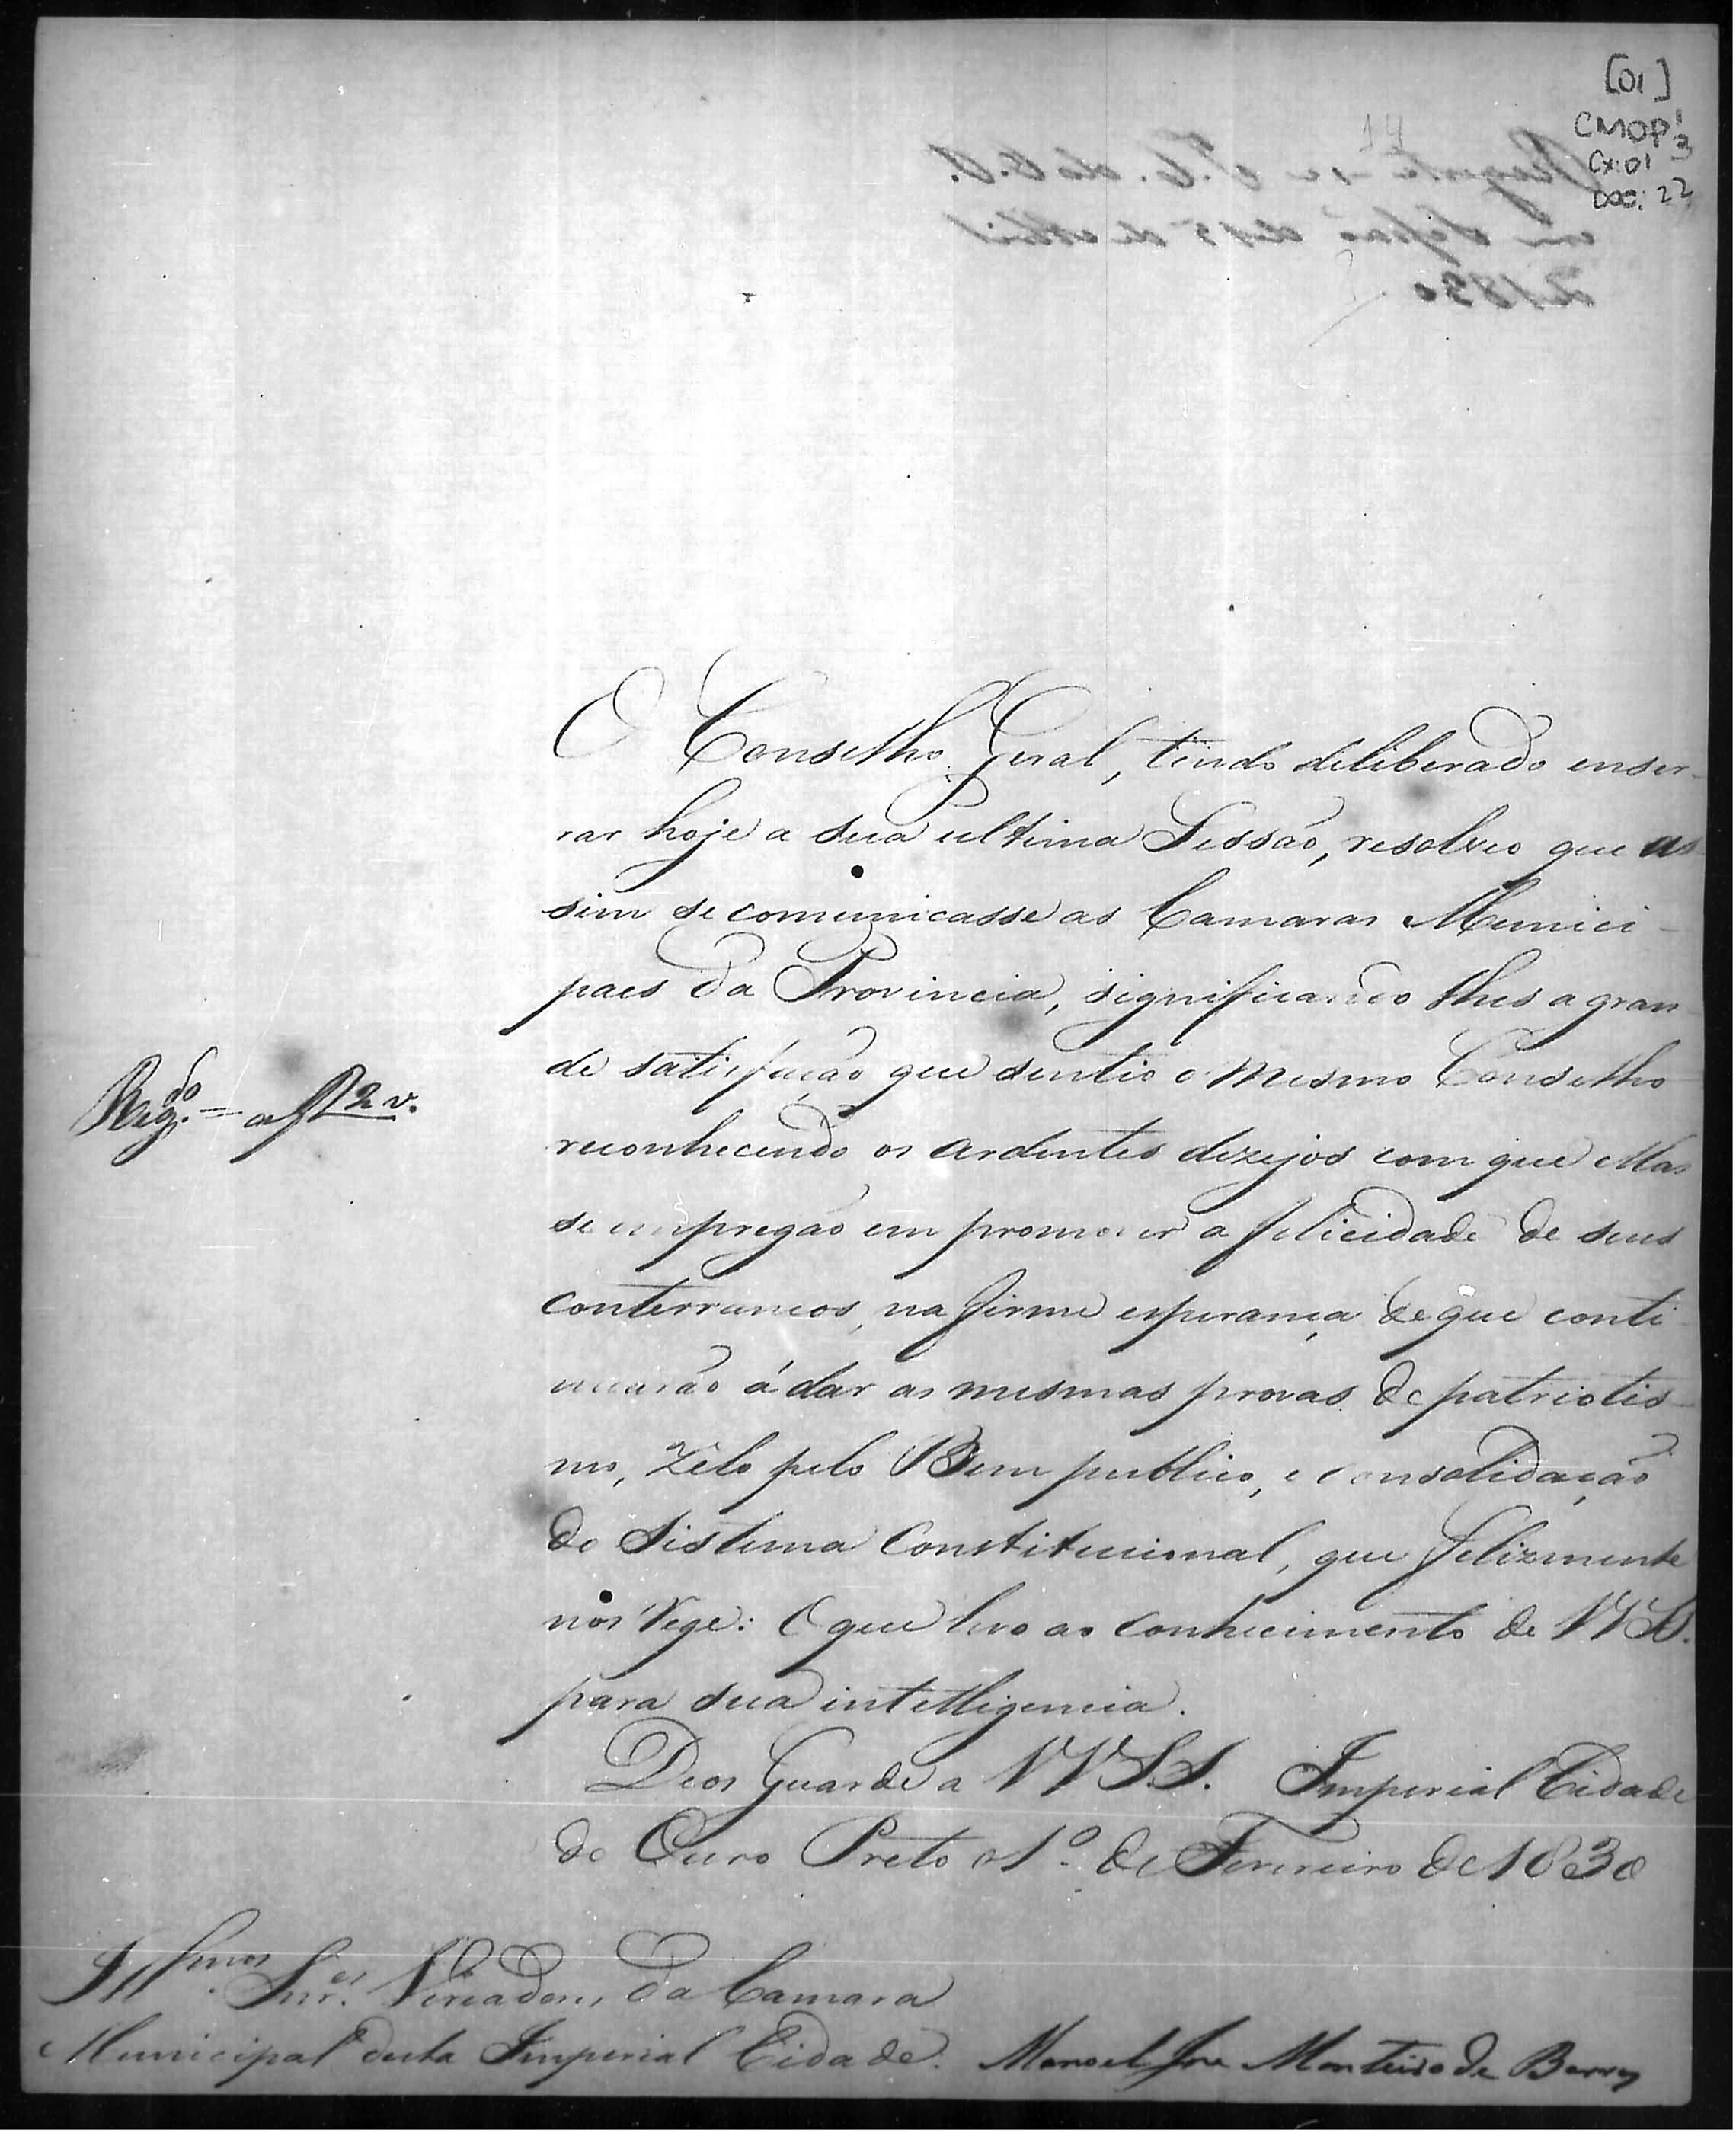 [01]
CMOP 1/3
Cx: 01
DOC: 22
14
O Conselho Geral, tendo deliberado enser-
rar hoje a sua ultima Sessão, resolveo que as
sim se comunicasse as Camaras Munici-
paes da Provincia, significando lhes a gran
de satisfação que sentio o mesmo Conselho
reconhecendo os ardentes dezejos com que ellas
se empregão em promover a felicidade de seus
conterraneos, na firme esperança de que conti
nuarão á dar as mesmas provas de patriotis-
mo, zelo pelo Bem publico, e consolidação
do Sistema Constitucional, que felizmente
nos rege: O que levo ao conhecimento de VVSS.
para sua intelligencia.
Deos Guarde a VVSS. Imperial Cidade
do Ouro Preto o 1º. de Fevereiro de 1830
Reg.do = a f 2 v.
Illmos. Snr.es Vereadores da Camara
Municipal desta Imperial Cidade. Manoel Jose Monteiro de Barros